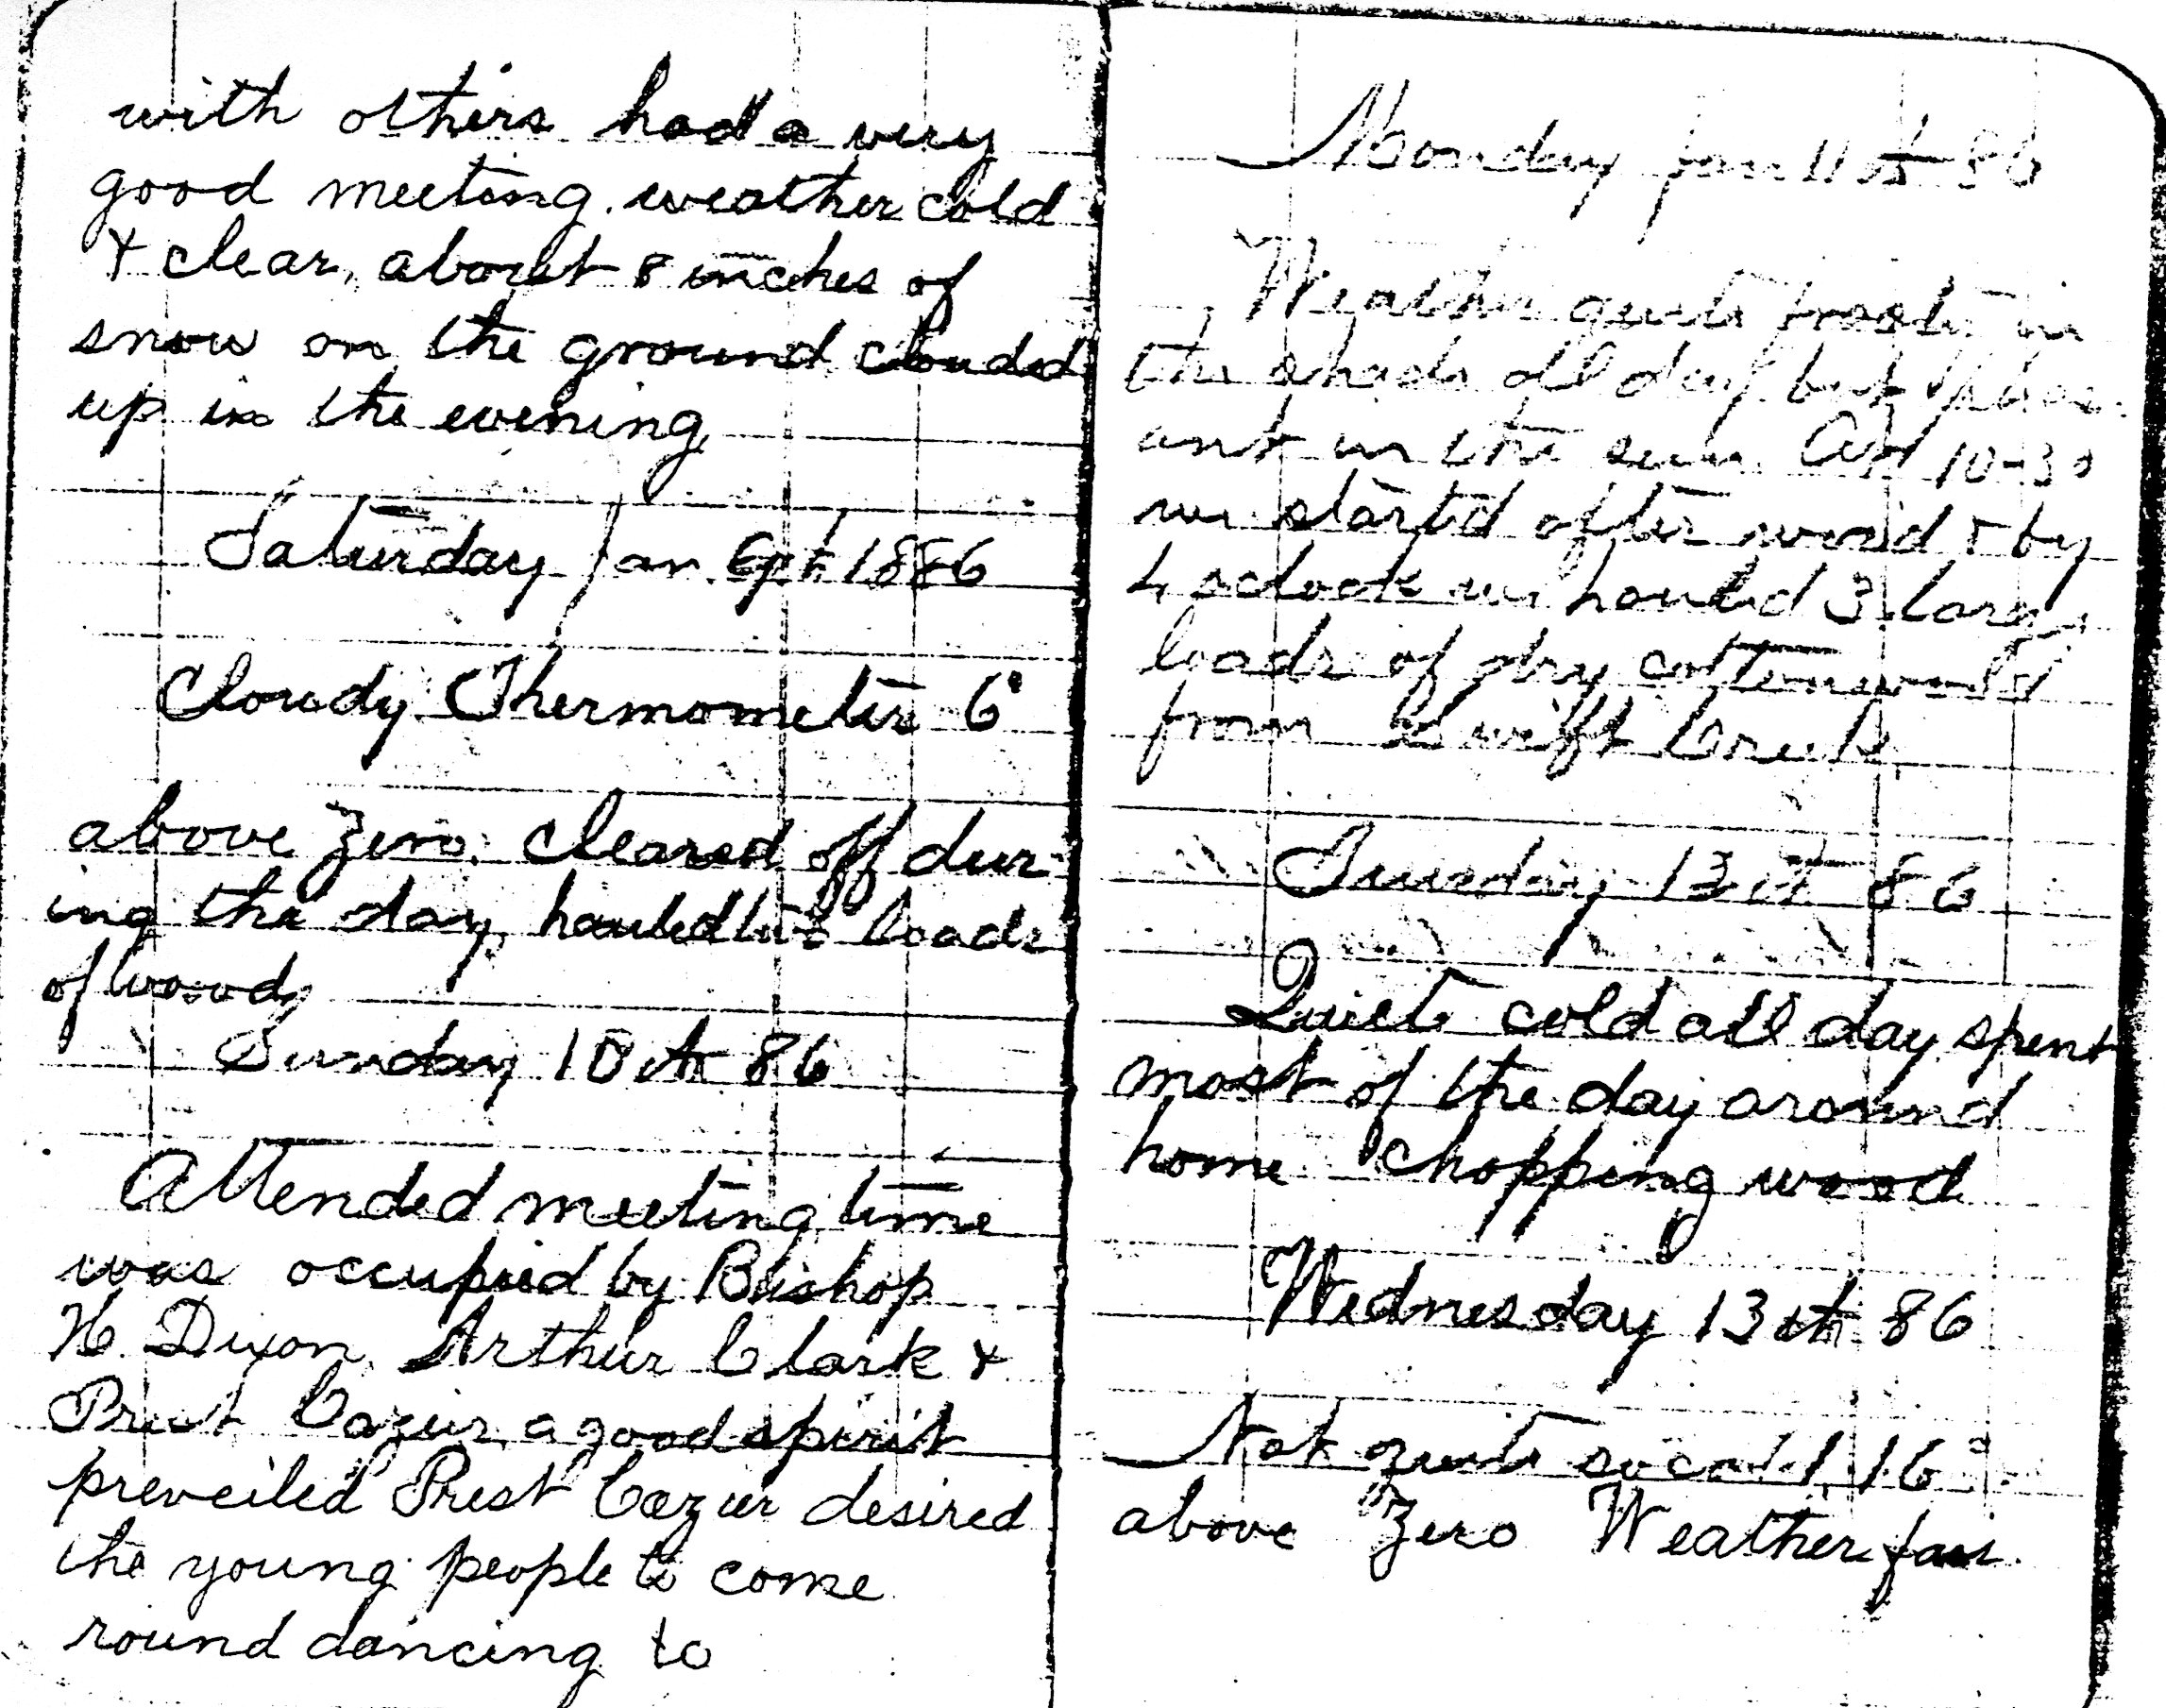 with others had a very
good meeting. weather cold
& clear, about 8 inches of
snow on the ground clouded
up in the evening
Saturday Jan 9th 1886
Cloudy Thermometer 6°
above zero. cleared off dur-
ing the day, hauled two loads
of wood,
Sunday 10th 86
Attended meeting time
was occupied by Bishop
H. Dixon, Arthur Clark &
Prest Cazier, a good spirit
preveiled Prest Cazier desired
the young people to come
round dancing to
Monday Jan 11th 86
Weather quite frosty in
the shade all day but pleas-
ant in the sun. At 10-30
we started after wood & by
4 oclock we hauled 3 large
loads of dry cottonwood
from Swift Creek
Tuesday 13th 86
Quiet cold all day spent
most of the day around
home chopping wood
Wednesday 13th 86
Not quite so cold, 16°
above Zero Weather fair